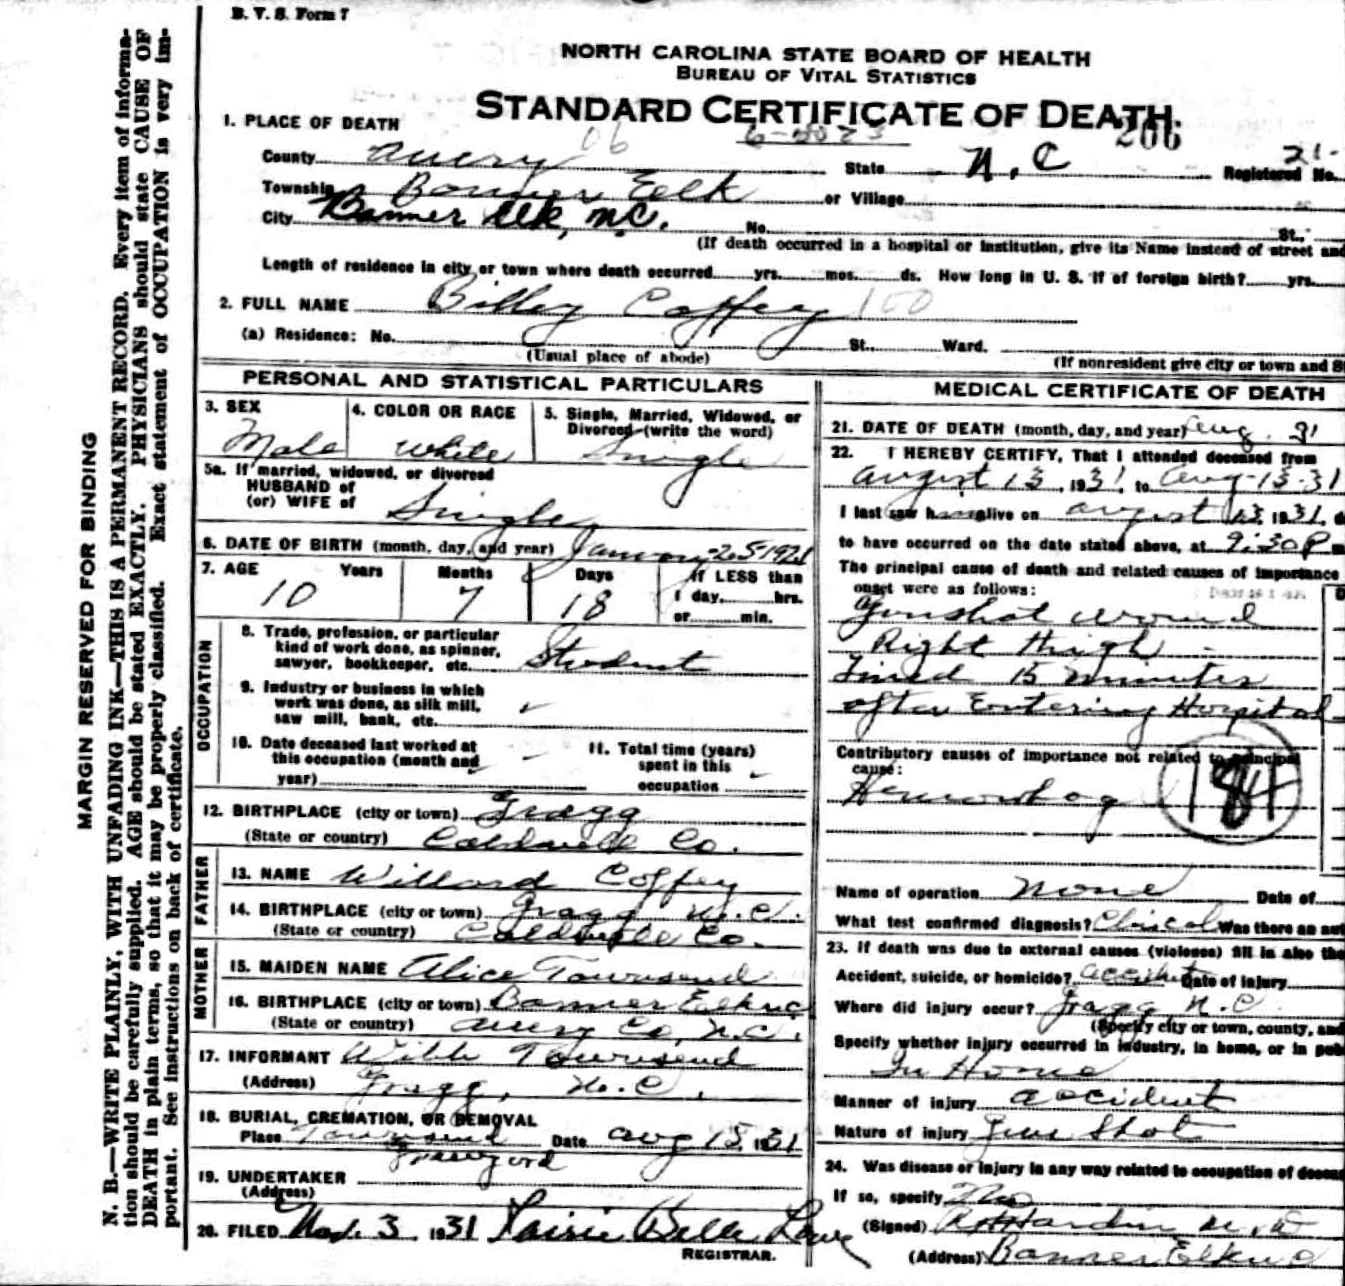 B. V. S. Form 7
NORTH CAROLINA STATE BOARD OF HEALTH
BUREAU OF VITAL STATISTICS
STANDARD CERTIFICATE OF DEATH.
206
1. PLACE OF DEATH
06
County Avery State N.C Registered No. 21-
Township Banner Eelk or Village
City Banner Elk, N.C. No. St.,
(If death occurred in a hospital or institution, give its Name instead of street and
Length of residence in city or town where death occurred yrs. mos. ds. How long in U. S. if of foreign birth? yrs.
2. FULL NAME Billey Coffey 100
(a) Residence: No. St., Ward.
(Usual place of abode) (If nonresident give city or town and S
PERSONAL AND STATISTICAL PARTICULARS
3. SEX 4. COLOR OR RACE 5. Single, Married, Widowed, or
Divorced (write the word)
Male White Single
5a. If married, widowed, or divorced
HUSBAND of
(or) WIFE of Single
6. DATE OF BIRTH (month, day, and year) January-25 1921
7. AGE Years Months Days If LESS than
10 7 18 1 day, hrs.
or min.
OCCUPATION
8. Trade, profession, or particular
kind of work done, as spinner,
sawyer, bookkeeper, etc. Student
9. Industry or business in which
work was done, as silk mill,
saw mill, bank, etc.
10. Date deceased last worked at
this occupation (month and
year)
11. Total time (years)
spent in this
occupation
12. BIRTHPLACE (city or town) Gragg
(State or country) Caldwell Co.
FATHER
13. NAME Willard Coffey
14. BIRTHPLACE (city or town) Gragg N.C.
(State or country) Caldwell Co.
MOTHER
15. MAIDEN NAME Alice Townsend
16. BIRTHPLACE (city or town) Banner Elk N.C.
(State or country) Avery Co, N.C.
17. INFORMANT Townsend
(Address) Gragg, N.C.
18. BURIAL, CREMATION, OR REMOVAL
Place Townsend Date Aug 15, 1931
Graveyard
19. UNDERTAKER
(Address)
20. FILED Nov. 3 1931 Belle Lowe
REGISTRAR.
MEDICAL CERTIFICATE OF DEATH
21. DATE OF DEATH (month, day, and year) Aug. 31
22. I HEREBY CERTIFY, That I attended deceased from
August 13, 1931, to Aug-13-31
I last saw him alive on August 13, 1931, d
to have occurred on the date stated above, at 9:30 P m
The principal cause of death and related causes of importance
onset were as follows:
Gunshot wound
Right thigh -
Lived 15 minutes
after Entering Hospital
Contributory causes of importance not related to principal
cause:
Hemorrhag
184
Name of operation None Date of
What test confirmed diagnosis? Clinical Was there an au
23. If death was due to external causes (violence) fill in also the
Accident, suicide, or homicide? accident Date of injury
Where did injury occur? Gragg N.C
(Specify city or town, county, and
Specify whether injury occurred in industry, in home, or in pub
In Home
Manner of injury accident
Nature of injury Gun Shot
24. Was disease or injury in any way related to occupation of decea
If so, specify No
(Signed) Hardin M.D
(Address) Banner Elk N C
MARGIN RESERVED FOR BINDING
N. B.—WRITE PLAINLY, WITH UNFADING INK—THIS IS A PERMANENT RECORD. Every item of informa-
tion should be carefully supplied. AGE should be stated EXACTLY. PHYSICIANS should state CAUSE OF
DEATH in plain terms, so that it may be properly classified. Exact statement of OCCUPATION is very im-
portant. See instructions on back of certificate.